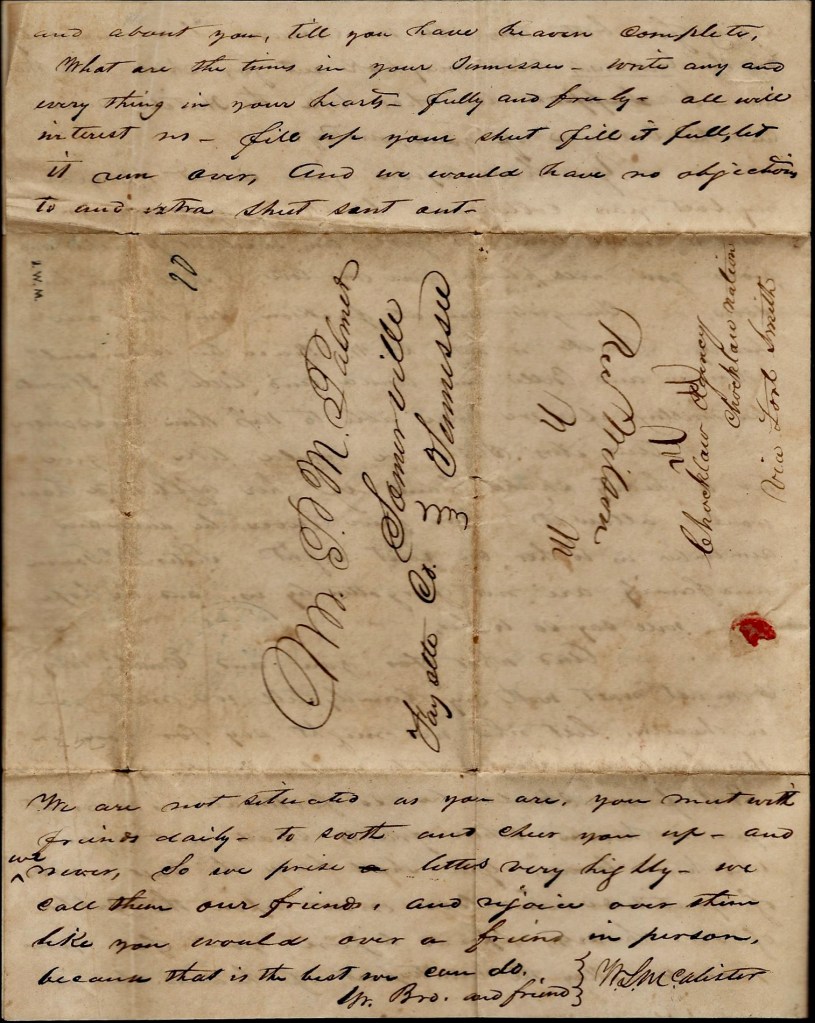 and about you, till you have heaven complete,
What are the times in your Tennessee - write any and
every thing in your hearts - fully and freely - all will
interest us - fill up your sheet fill it full, let
it run over, And we would have no objections
to and extra sheet sent out -
J.W.M.
10
Mr. T. M. Palmer
Somerville
Fayette Co. Tennessee
Rev Wilson
N
M
Chocktaw Agency
Chocktaw Nation
Via Fort Smith
We are not situated as you are, you meet with
friends daily - to sooth and cheer you up - and
we never, So we prise a letter very highly - we
call them our friends, and rejoice over them
like you would over a friend in person,
because that is the best we can do.
Yr. Bro. and friend W.S.McAlister